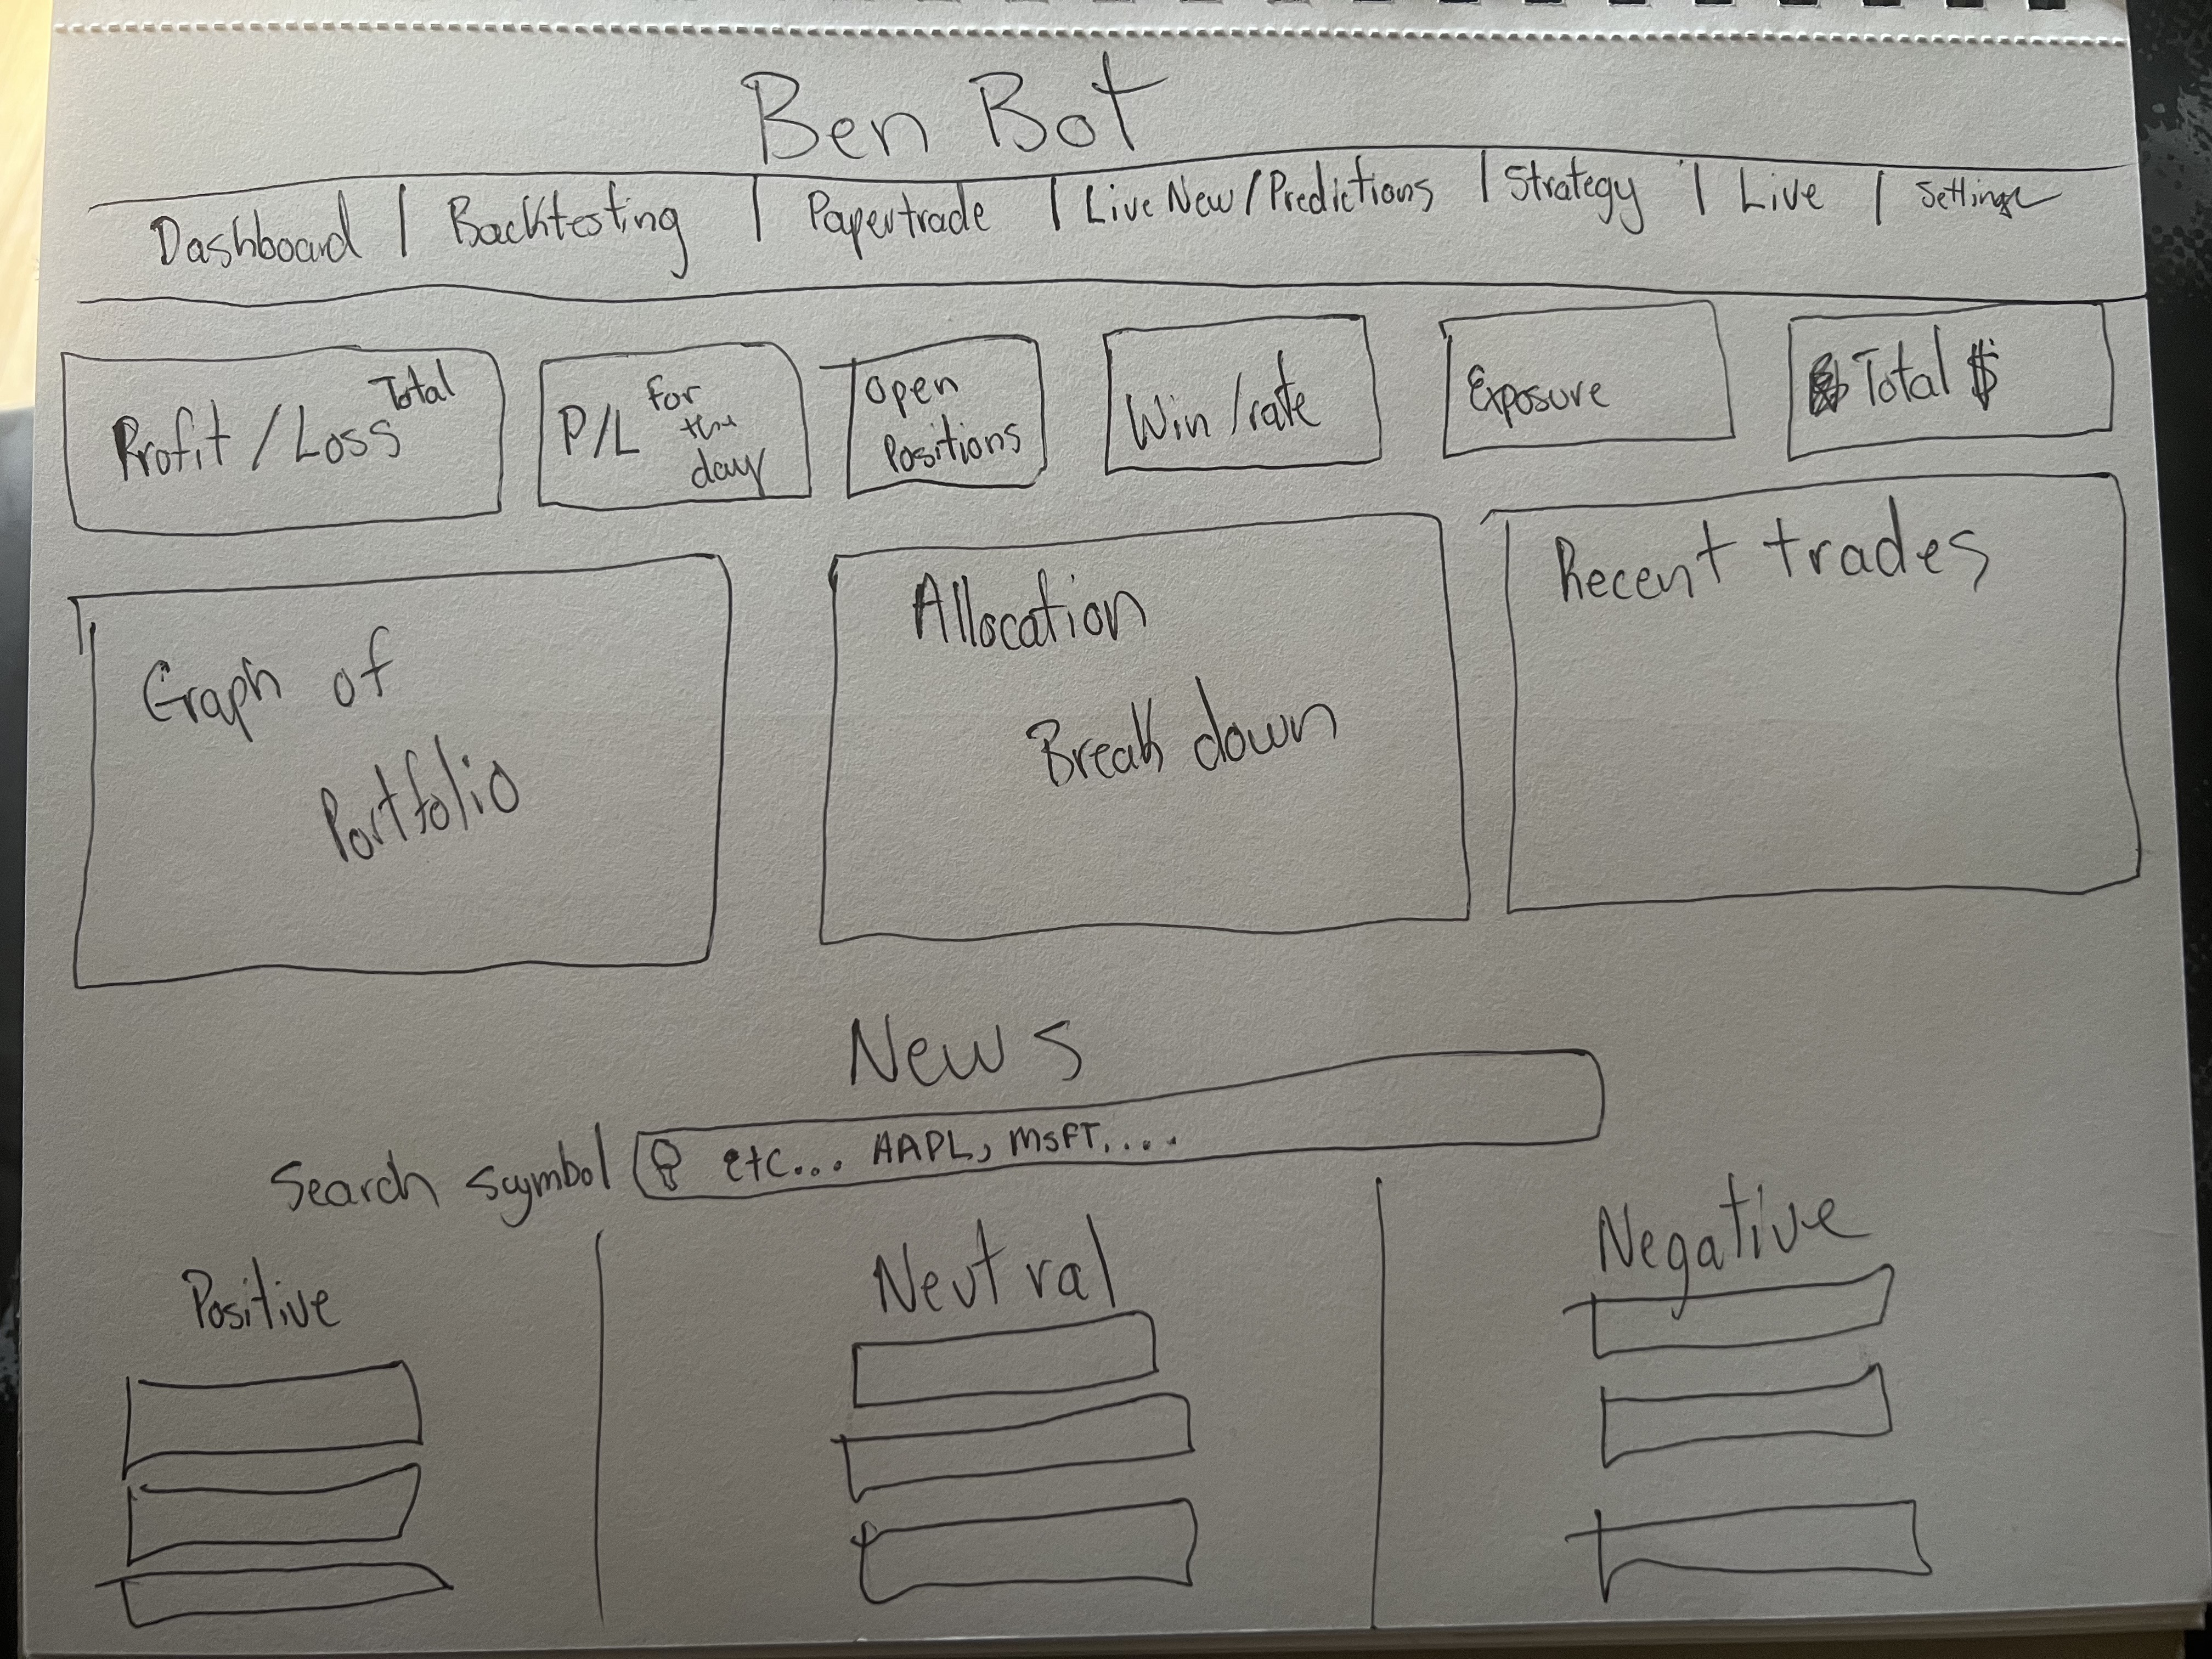 Ben Bot
Dashboard | Backtesting | Papertrade | Live New/Predictions | Strategy | Live | Settings
Profit / Loss Total
P/L for the day
Open Positions
Win/rate
Exposure
Total $
Graph of
Portfolio
Allocation
Break down
Recent trades
News
Search Symbol etc... AAPL, MSFT....
Positive
Neutral
Negative